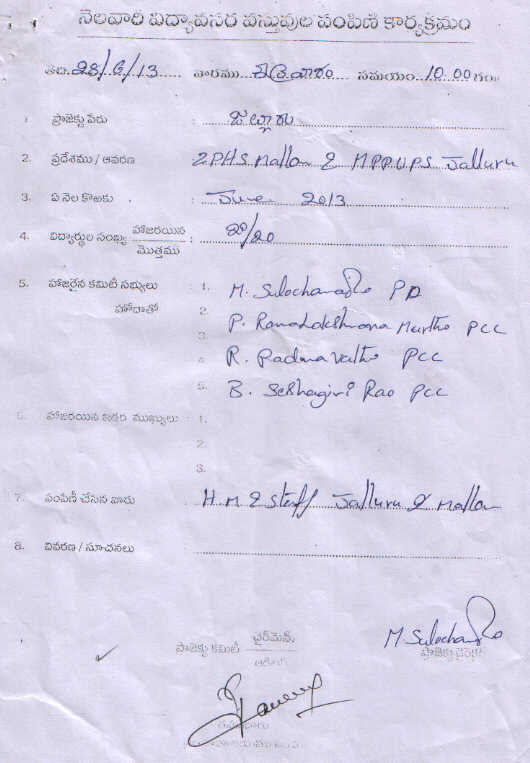 నెలవారీ విద్యావసర వస్తువుల పంపిణీ కార్యక్రమం
తేది. 28/6/13 వారము శుక్రవారం సమయం 10.00 గం॥
1. ప్రాజెక్టు పేరు : జల్లూరు
2. ప్రదేశము / ఆవరణ : ZPHS Mallam & MPPUPS Jalluru
3. ఏ నెల కొఱకు : June 2013
4. విద్యార్థుల సంఖ్య హాజరయిన / మొత్తము : 20/20
5. హాజరైన కమిటీ సభ్యులు : 1. M. Sulochana Rao PD
హోదాతో 2. P. Ramalakshmana Murthy PCC
3.
4. R. Padmavathi PCC
5. B. Seshagiri Rao PCC
6. హాజరయిన ఇతర ముఖ్యులు : 1.
2.
3.
7. పంపిణీ చేసిన వారు : H.M & Staff Jalluru & Mallam
8. వివరణ / సూచనలు :
ప్రాజెక్టు కమిటీ ఛైర్మెన్
M Sulochana Rao
ప్రాజెక్టు డైరెక్టర్